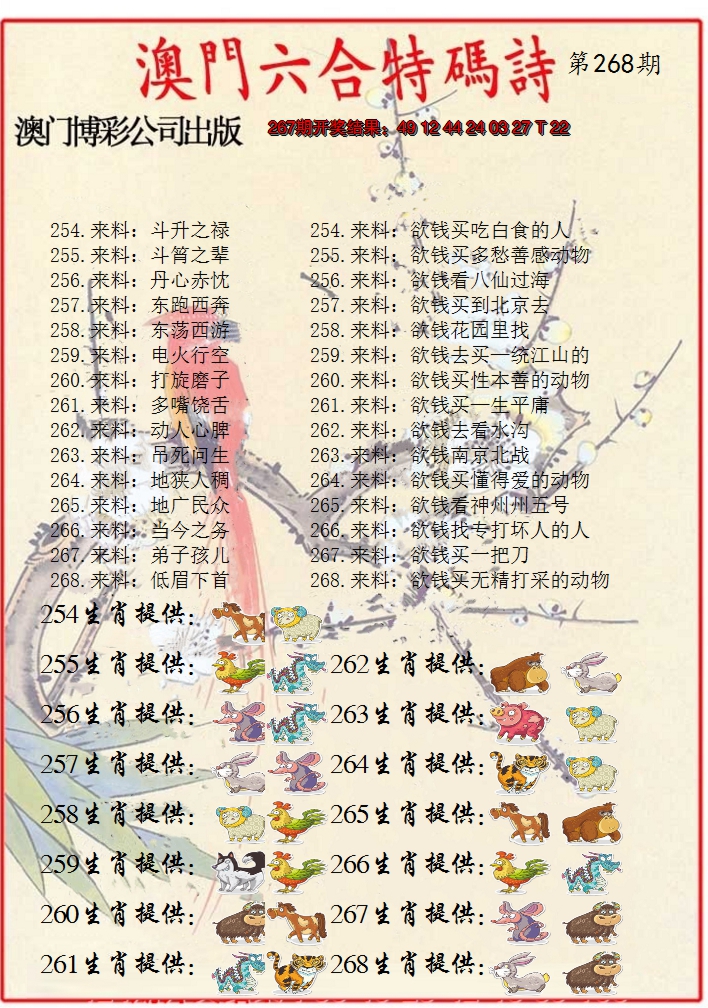 澳門六合特碼詩 第268期
澳门博彩公司出版 267期开奖结果：49 12 44 24 03 27 T 22
254.来料：斗升之禄 254.来料：欲钱买吃白食的人
255.来料：斗筲之辈 255.来料：欲钱买多愁善感动物
256.来料：丹心赤忱 256.来料：欲钱看八仙过海
257.来料：东跑西奔 257.来料：欲钱买到北京去
258.来料：东荡西游 258.来料：欲钱花园里找
259.来料：电火行空 259.来料：欲钱去买一统江山的
260.来料：打旋磨子 260.来料：欲钱买性本善的动物
261.来料：多嘴饶舌 261.来料：欲钱买一生平庸
262.来料：动人心脾 262.来料：欲钱去看水沟
263.来料：吊死问生 263.来料：欲钱南京北战
264.来料：地狭人稠 264.来料：欲钱买懂得爱的动物
265.来料：地广民众 265.来料：欲钱看神州州五号
266.来料：当今之务 266.来料：欲钱找专打坏人的人
267.来料：弟子孩儿 267.来料：欲钱买一把刀
268.来料：低眉下首 268.来料：欲钱买无精打采的动物
254生肖提供：
255生肖提供： 262生肖提供：
256生肖提供： 263生肖提供：
257生肖提供： 264生肖提供：
258生肖提供： 265生肖提供：
259生肖提供： 266生肖提供：
260生肖提供： 267生肖提供：
261生肖提供： 268生肖提供：